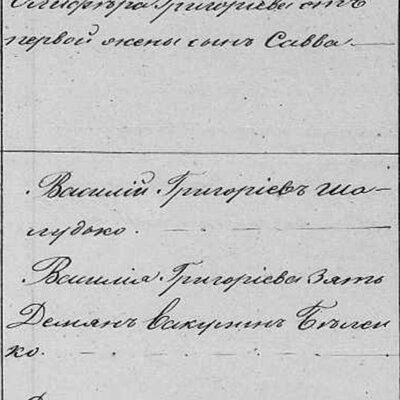 Олиферра Григорiева отъ
первой жены сынъ Савва
Василiй Григорiевъ Ша-
лудько.
Василiя Григорiева зять
Демянъ Вакулинъ Бѣлен
ко.